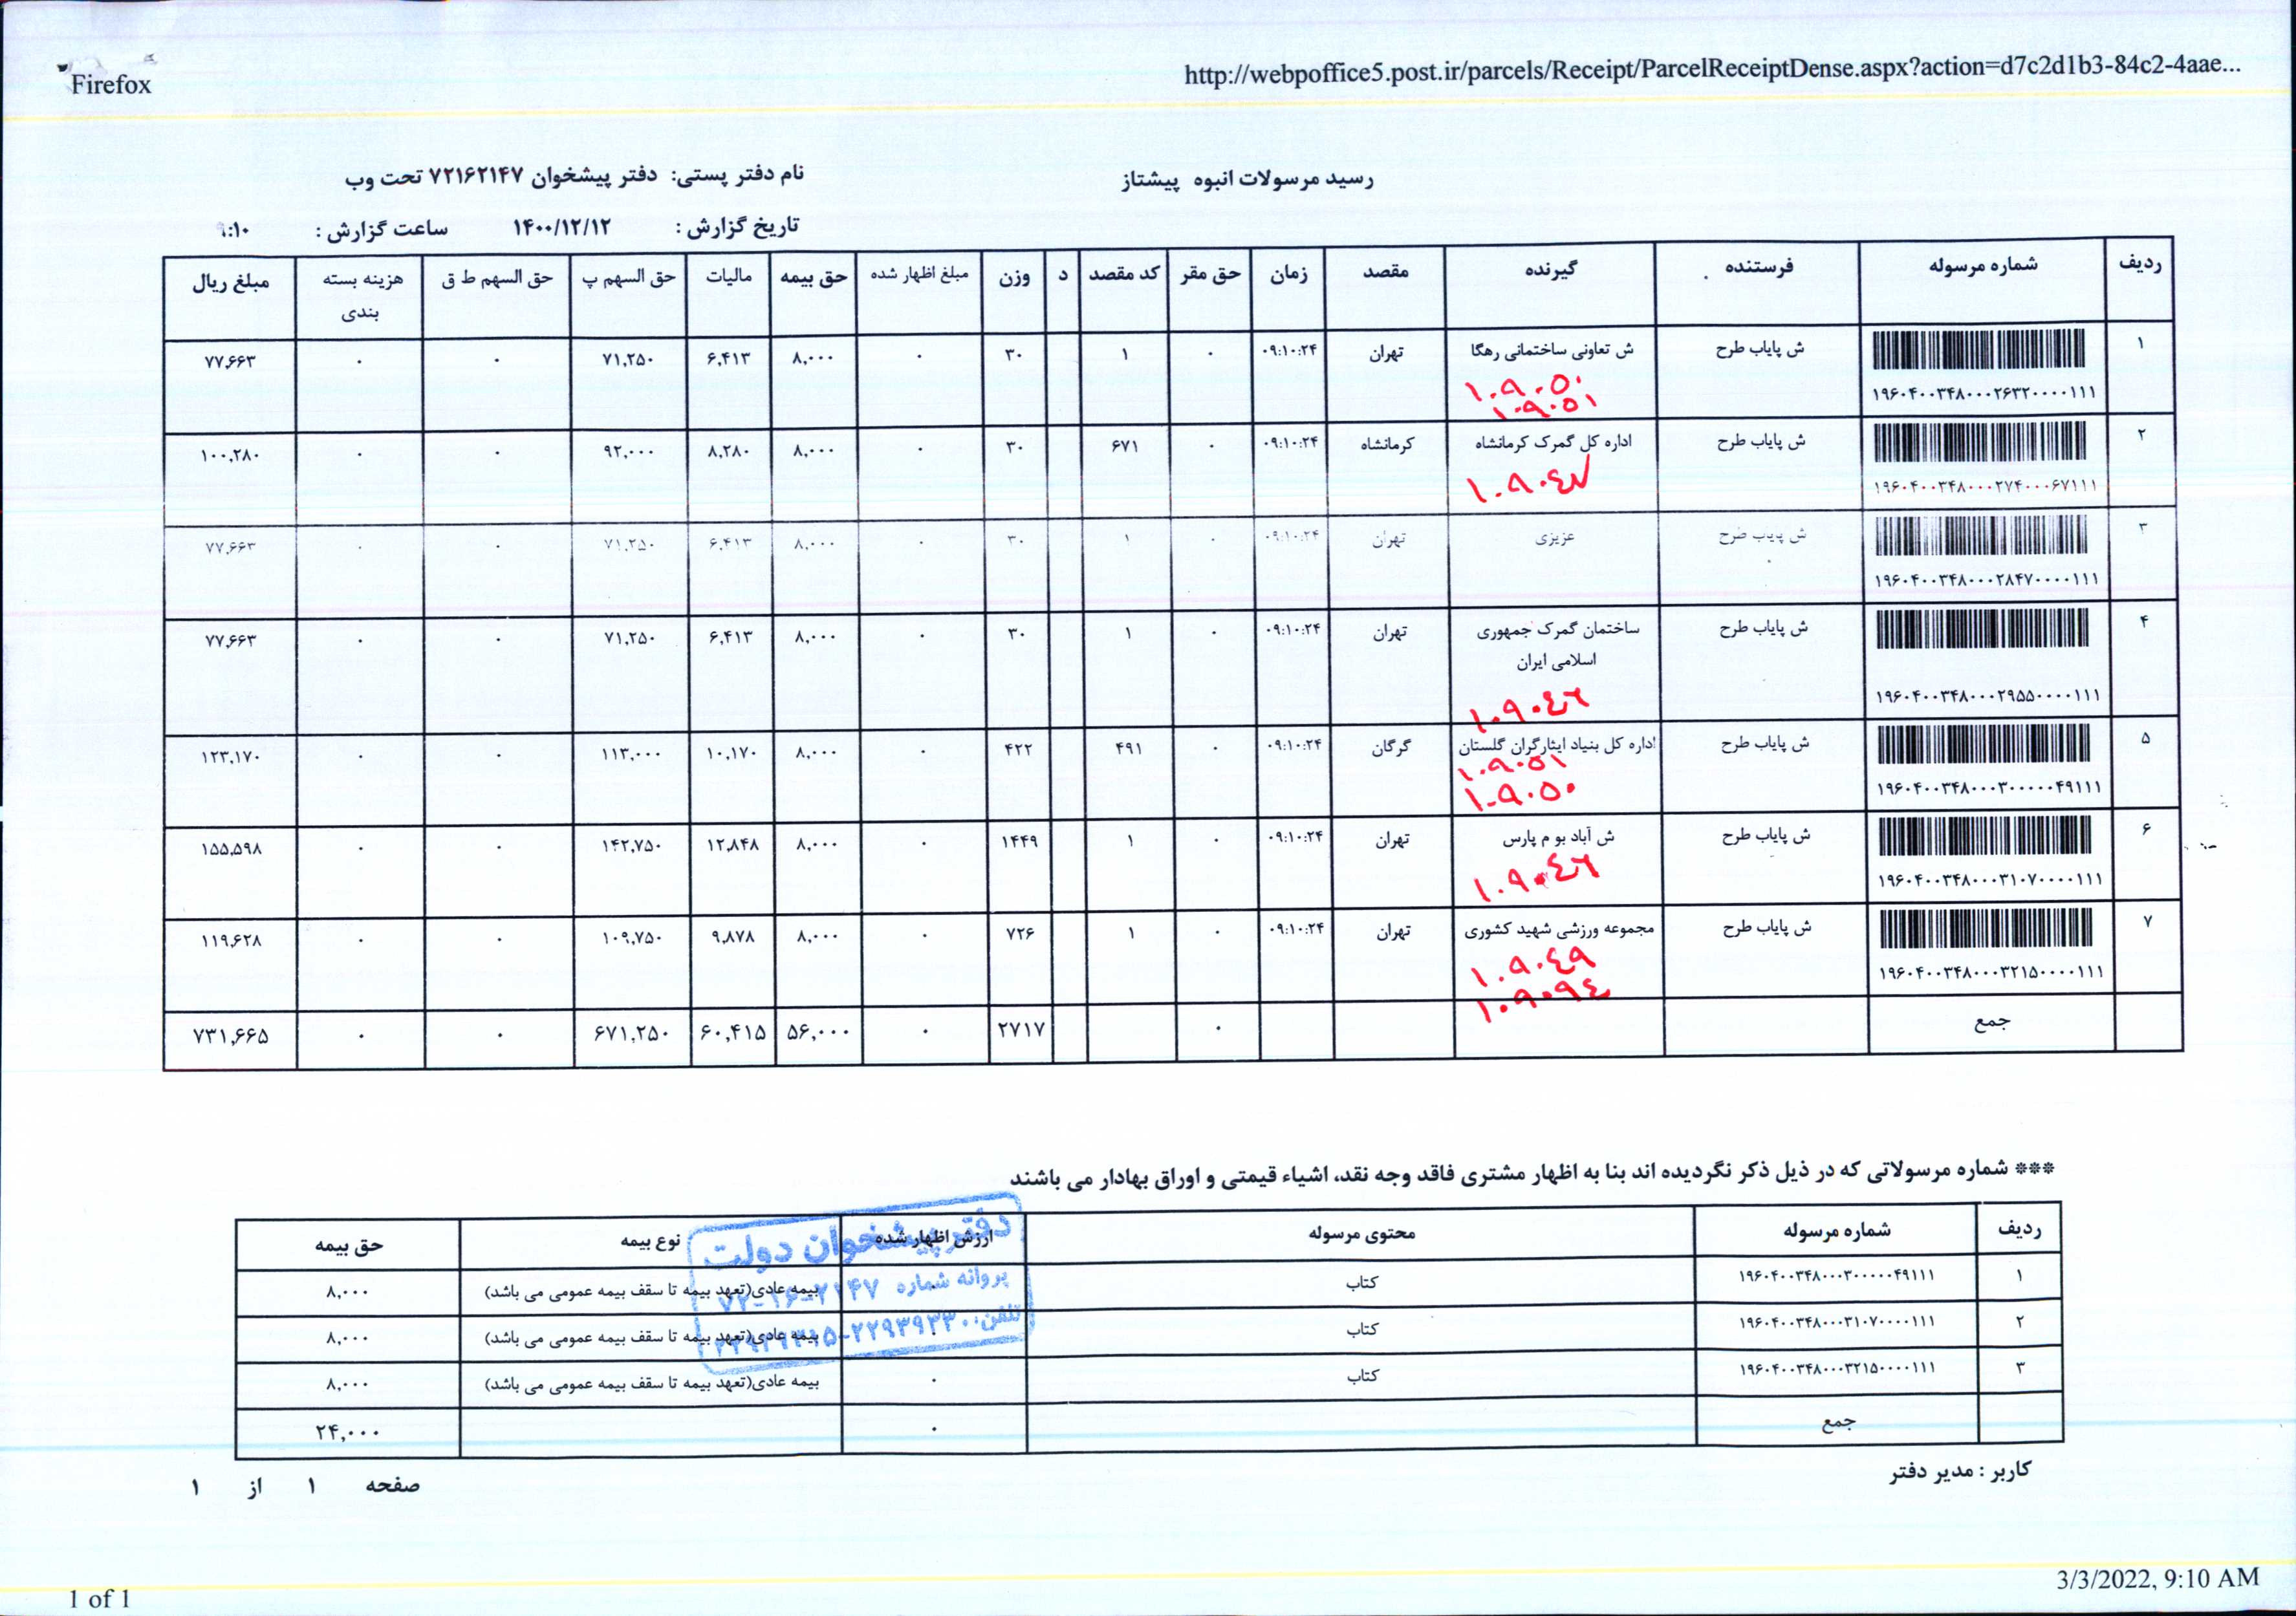 Firefox
http://webpoffice5.post.ir/parcels/Receipt/ParcelReceiptDense.aspx?action=d7c2d1b3-84c2-4aae...
رسید مرسولات انبوه پیشتاز
نام دفتر پستی: دفتر پیشخوان ۷۲۱۶۲۱۴۷ تحت وب
تاریخ گزارش : ۱۴۰۰/۱۲/۱۲ ساعت گزارش : ۹:۱۰
ردیف شماره مرسوله فرستنده گیرنده مقصد زمان حق مقر کد مقصد د وزن مبلغ اظهار شده حق بیمه مالیات حق السهم پ حق السهم ط ق هزینه بسته بندی مبلغ ریال
۱ ش پایاب طرح ش تعاونی ساختمانی رهگا تهران ۰۹:۱۰:۲۴ ۰ ۱ ۳۰ ۰ ۸,۰۰۰ ۶,۴۱۳ ۷۱,۲۵۰ ۰ ۰ ۷۷,۶۶۳
۱۹۶۰۴۰۰۳۴۸۰۰۰۲۶۳۲۰۰۰۰۱۱۱
۱۰۹۰۵۰
۱۰۹۰۵۱
۲ ش پایاب طرح اداره کل گمرک کرمانشاه کرمانشاه ۰۹:۱۰:۲۴ ۰ ۶۷۱ ۳۰ ۰ ۸,۰۰۰ ۸,۲۸۰ ۹۲,۰۰۰ ۰ ۰ ۱۰۰,۲۸۰
۱۹۶۰۴۰۰۳۴۸۰۰۰۲۷۴۰۰۰۶۷۱۱۱
۱۰۹۰٤۷
۳ ش پایاب طرح عزیزی تهران ۰۹:۱۰:۲۴ ۰ ۱ ۳۰ ۰ ۸,۰۰۰ ۶,۴۱۳ ۷۱,۲۵۰ ۰ ۰ ۷۷,۶۶۳
۱۹۶۰۴۰۰۳۴۸۰۰۰۲۸۴۷۰۰۰۰۱۱۱
۴ ش پایاب طرح ساختمان گمرک جمهوری اسلامی ایران تهران ۰۹:۱۰:۲۴ ۰ ۱ ۳۰ ۰ ۸,۰۰۰ ۶,۴۱۳ ۷۱,۲۵۰ ۰ ۰ ۷۷,۶۶۳
۱۹۶۰۴۰۰۳۴۸۰۰۰۲۹۵۵۰۰۰۰۱۱۱
۱۰۹۰٤٦
۵ ش پایاب طرح اداره کل بنیاد ایثارگران گلستان گرگان ۰۹:۱۰:۲۴ ۰ ۴۹۱ ۴۲۲ ۰ ۸,۰۰۰ ۱۰,۱۷۰ ۱۱۳,۰۰۰ ۰ ۰ ۱۲۳,۱۷۰
۱۹۶۰۴۰۰۳۴۸۰۰۰۳۰۰۰۰۰۴۹۱۱۱
۱۰۹۰۵۱
۱۰۹۰۵۰
۶ ش پایاب طرح ش آباد بو م پارس تهران ۰۹:۱۰:۲۴ ۰ ۱ ۱۴۴۹ ۰ ۸,۰۰۰ ۱۲,۸۴۸ ۱۴۲,۷۵۰ ۰ ۰ ۱۵۵,۵۹۸
۱۹۶۰۴۰۰۳۴۸۰۰۰۳۱۰۷۰۰۰۰۱۱۱
۱۰۹۰٤٦
۷ ش پایاب طرح مجموعه ورزشی شهید کشوری تهران ۰۹:۱۰:۲۴ ۰ ۱ ۷۲۶ ۰ ۸,۰۰۰ ۹,۸۷۸ ۱۰۹,۷۵۰ ۰ ۰ ۱۱۹,۶۲۸
۱۹۶۰۴۰۰۳۴۸۰۰۰۳۲۱۵۰۰۰۰۱۱۱
۱۰۹۰٤۹
۱۰۹۰۹٤
جمع ۰ ۲۷۱۷ ۰ ۵۶,۰۰۰ ۶۰,۴۱۵ ۶۷۱,۲۵۰ ۰ ۰ ۷۳۱,۶۶۵
*** شماره مرسولاتی که در ذیل ذکر نگردیده اند بنا به اظهار مشتری فاقد وجه نقد، اشیاء قیمتی و اوراق بهادار می باشند
ردیف شماره مرسوله محتوی مرسوله ارزش اظهار شده نوع بیمه حق بیمه
۱ ۱۹۶۰۴۰۰۳۴۸۰۰۰۳۰۰۰۰۰۴۹۱۱۱ کتاب ۰ بیمه عادی(تعهد بیمه تا سقف بیمه عمومی می باشد) ۸,۰۰۰
۲ ۱۹۶۰۴۰۰۳۴۸۰۰۰۳۱۰۷۰۰۰۰۱۱۱ کتاب ۰ بیمه عادی(تعهد بیمه تا سقف بیمه عمومی می باشد) ۸,۰۰۰
۳ ۱۹۶۰۴۰۰۳۴۸۰۰۰۳۲۱۵۰۰۰۰۱۱۱ کتاب ۰ بیمه عادی(تعهد بیمه تا سقف بیمه عمومی می باشد) ۸,۰۰۰
جمع ۰ ۲۴,۰۰۰
دفتر پیشخوان دولت
پروانه شماره ۷۲-۱۶-۲۱۴۷
تلفن:
کاربر : مدیر دفتر
صفحه ۱ از ۱
1 of 1
3/3/2022, 9:10 AM